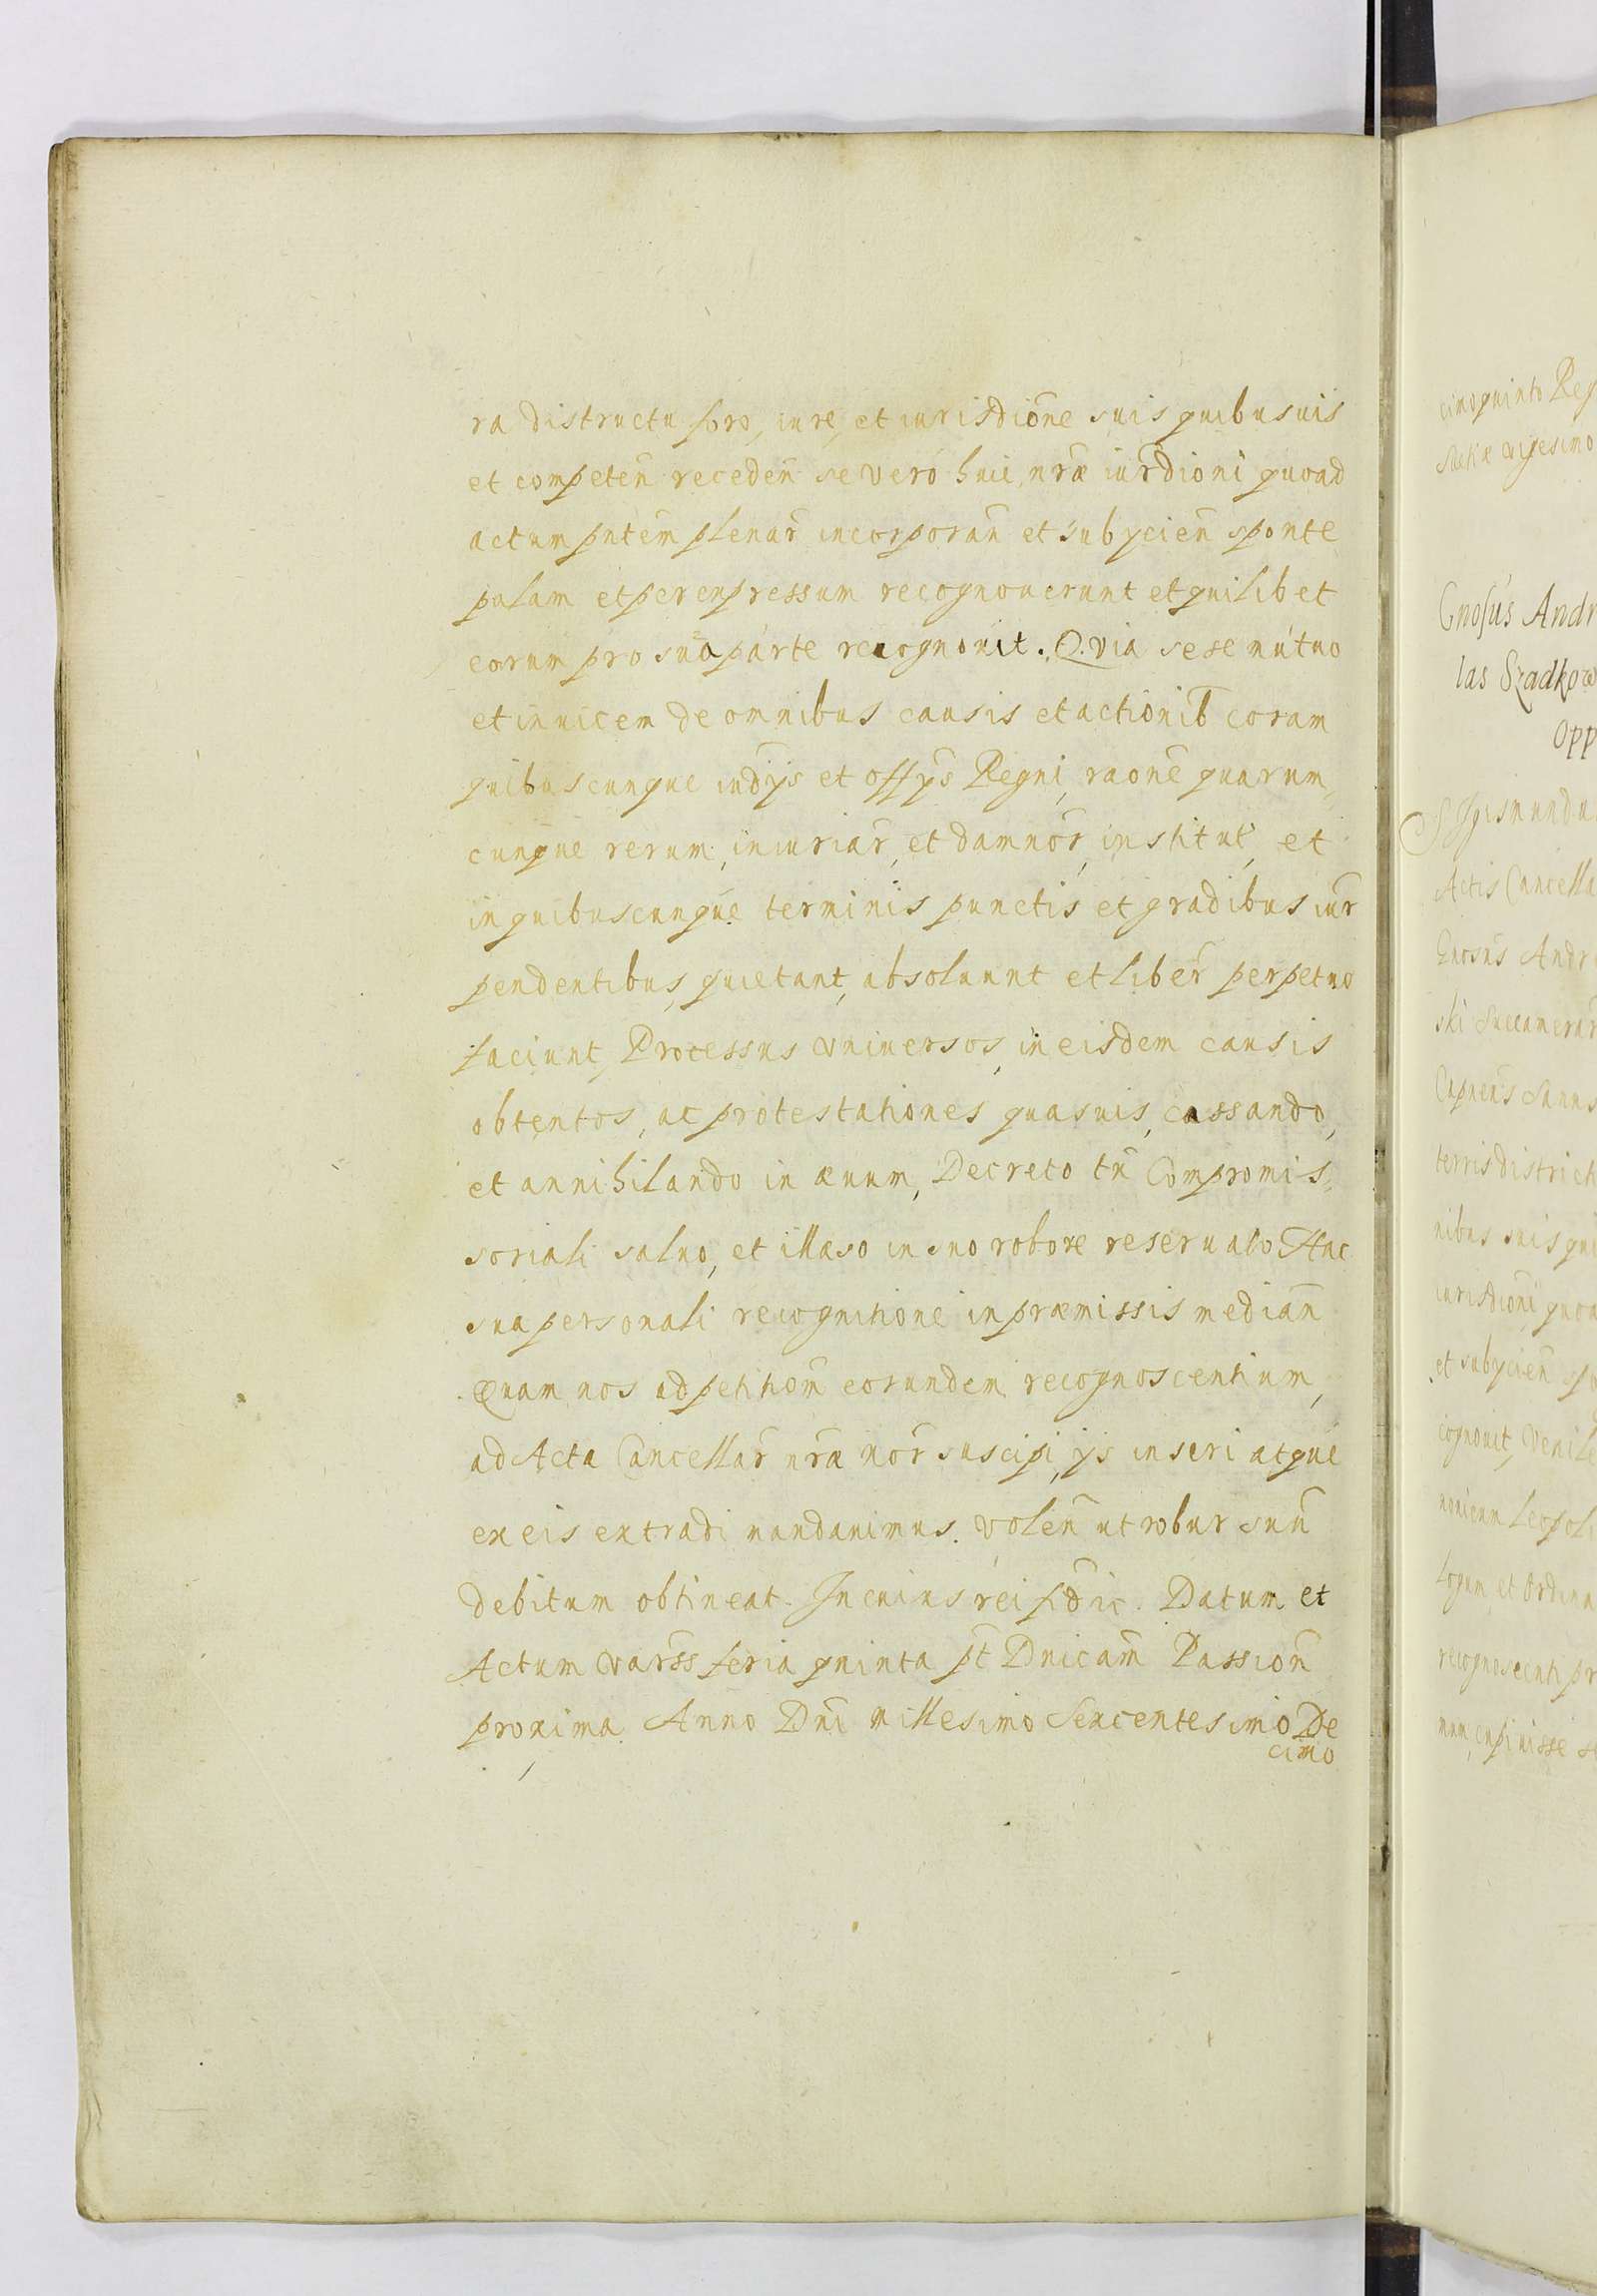 ra districtu foro, iure, et iurisdiōne suis quibusuis
et competeñ recedeñ se vero huic nr̃æ iur̃dioni quoad
actum pñtem plenar̃ incorporañ et subycień sponte
palam et per expressum recognouerunt et quilibet
eorum pro sua parte recognouit. Quia sese mutuo
et inuicem de omnibus causis et actionib̃ coram
quibuscunque iud̃ys et off̃ys Regni, raonẽ quarum,,
cunque rerum, iniuriar̃, et damnor̃, institut, et
in quibuscunque terminis punctis et gradibus iur̃
pendentibus, quietant, absoluunt et liber̃ perpetuo
faciunt, Processus vniuersos, in eisdem causis
obtentos, ac protestationes quasuis, cassando,
et annihilando in æuum, Decreto tñ Compromis,,
soriali saluo, et illæso in suo robore reseruato Hac
sua personali recognitione in præmissis mediañ
Quam nos ad petitiom̃ eorundem recognoscentium,
ad Acta Cancellar̃ nr̃a nor̃ suscipi, ys inseri atque
ex eis extradi mandauimus. Voleñ ut robur suũ
debitum obtineat. In cuius rei fid̃ ic. Datum et
Actum Vars̃s feria quinta p̃t Dnicam̃ Passioñ
proxima Anno Dñi Millesimo Sexcentesimo De
cimo
cimoquinto Reg
Suetiæ vigesimo
Gnosus Andr
las Szadkow
Opp
Sigismundu
Actis Cancella
Gnosus Andr
ski Succamerar
Capneñs Sanns
terris district
nibus suis qui
iurisdioni quoa
et subycień spo
cognouit, Veni
nonicum Leopol
logum, et Ordina
recognoscenti pr
mum, cupiuisse se